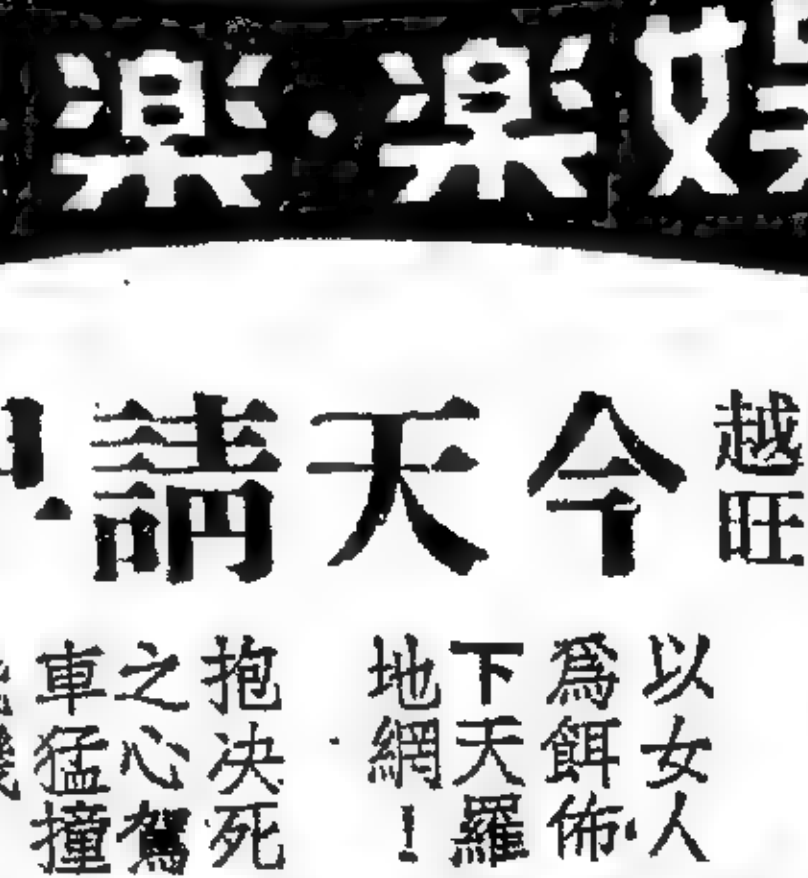 娛楽・楽
越旺
今天請
以女人
爲餌佈
下天羅
地網！
抱决死
之心駕
車猛撞